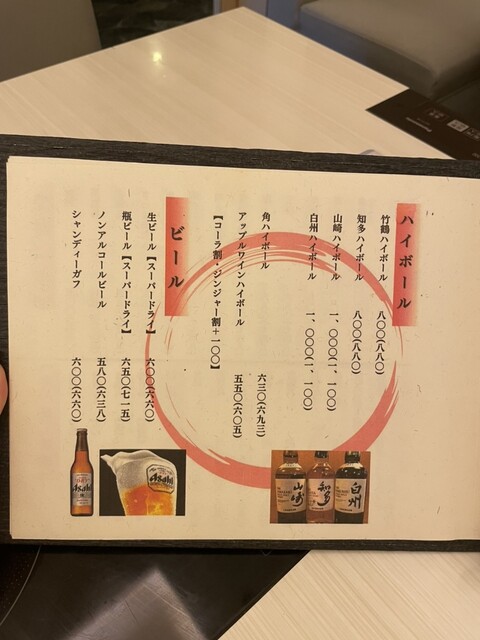 ハイボール
竹鶴ハイボール 八〇〇(八八〇)
知多ハイボール 八〇〇(八八〇)
山崎ハイボール 一、〇〇〇(一、一〇〇)
白州ハイボール 一、〇〇〇(一、一〇〇)
角ハイボール 六三〇(六九三)
アップルワインハイボール 五五〇(六〇五)
【コーラ割・ジンジャー割+一〇〇】
ビール
生ビール【スーパードライ】 六〇〇(六六〇)
瓶ビール【スーパードライ】 六五〇(七一五)
ノンアルコールビール 五八〇(六三八)
シャンディーガフ 六〇〇(六六〇)
Asahi
Asahi
山崎
知多
白州